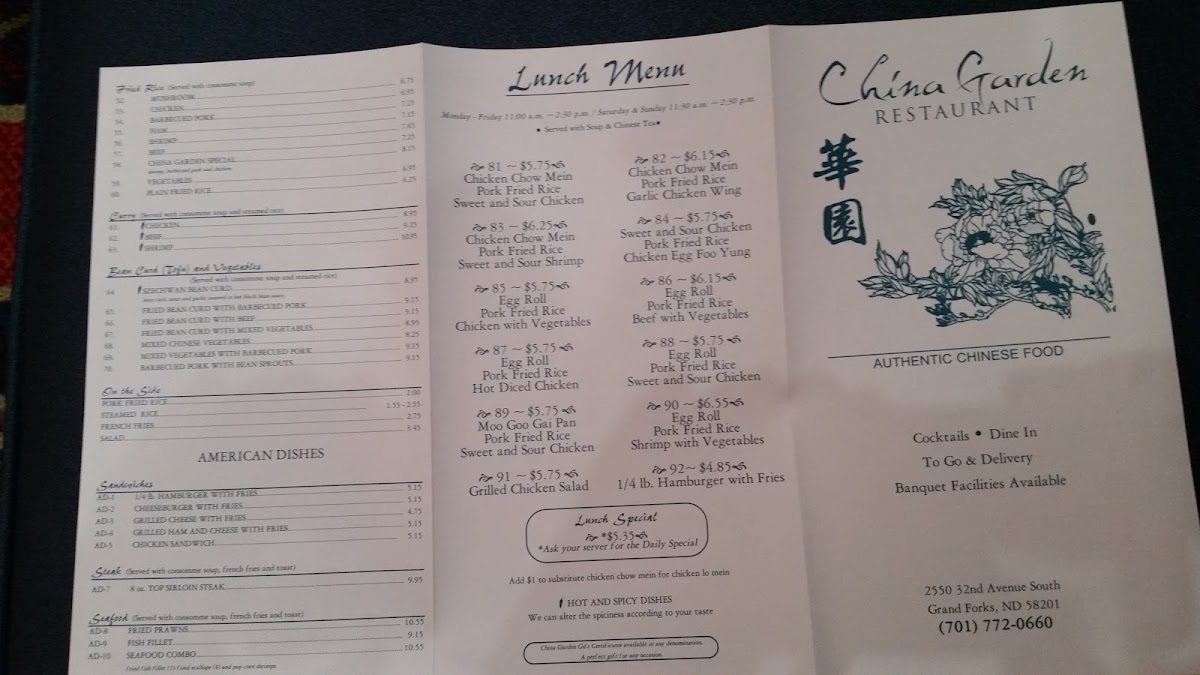 Fried Rice (Served with consomme soup)
52. MUSHROOM 6.75
53. CHICKEN 6.95
54. BARBECUED PORK 7.15
55. HAM 7.15
56. SHRIMP 7.65
57. BEEF 7.25
58. CHINA GARDEN SPECIAL 8.15
shrimp, barbecued pork and chicken
59. VEGETABLES 6.95
60. PLAIN FRIED RICE 6.25
Curry (Served with consomme soup and steamed rice)
61. CHICKEN 8.95
62. BEEF 9.25
63. SHRIMP 10.95
Bean Curd (Tofu) and Vegetables
(Served with consomme soup and steamed rice)
64. SZECHWAN BEAN CURD 8.95
65. FRIED BEAN CURD WITH BARBECUED PORK 9.15
66. FRIED BEAN CURD WITH BEEF 9.15
67. FRIED BEAN CURD WITH MIXED VEGETABLES 8.95
68. MIXED CHINESE VEGETABLES 8.25
69. MIXED VEGETABLES WITH BARBECUED PORK 9.15
70. BARBECUED PORK WITH BEAN SPROUTS 9.15
On the Side
PORK FRIED RICE 2.00
STEAMED RICE 1.55 - 2.55
FRENCH FRIES 2.75
SALAD 3.45
AMERICAN DISHES
Sandwiches
AD-1 1/4 lb. HAMBURGER WITH FRIES 5.15
AD-2 CHEESEBURGER WITH FRIES 5.15
AD-3 GRILLED CHEESE WITH FRIES 4.75
AD-4 GRILLED HAM AND CHEESE WITH FRIES 5.15
AD-5 CHICKEN SANDWICH 5.15
Steak (Served with consomme soup, french fries and toast)
AD-7 8 oz. TOP SIRLOIN STEAK 9.95
Seafood (Served with consomme soup, french fries and toast)
AD-8 FRIED PRAWNS 10.55
AD-9 FISH FILLET 9.15
AD-10 SEAFOOD COMBO 10.55
Fried Fish Fillet (1) Fried scallops (4) and pop corn shrimps
Lunch Menu
Monday - Friday 11:00 a.m. ~ 2:30 p.m. / Saturday & Sunday 11:30 a.m. ~ 2:30 p.m.
• Served with Soup & Chinese Tea•
81 ~ $5.75
Chicken Chow Mein
Pork Fried Rice
Sweet and Sour Chicken
82 ~ $6.15
Chicken Chow Mein
Pork Fried Rice
Garlic Chicken Wing
83 ~ $6.25
Chicken Chow Mein
Pork Fried Rice
Sweet and Sour Shrimp
84 ~ $5.75
Sweet and Sour Chicken
Pork Fried Rice
Chicken Egg Foo Yung
85 ~ $5.75
Egg Roll
Pork Fried Rice
Chicken with Vegetables
86 ~ $6.15
Egg Roll
Pork Fried Rice
Beef with Vegetables
87 ~ $5.75
Egg Roll
Pork Fried Rice
Hot Diced Chicken
88 ~ $5.75
Egg Roll
Pork Fried Rice
Sweet and Sour Chicken
89 ~ $5.75
Moo Goo Gai Pan
Pork Fried Rice
Sweet and Sour Chicken
90 ~ $6.55
Egg Roll
Pork Fried Rice
Shrimp with Vegetables
91 ~ $5.75
Grilled Chicken Salad
92~ $4.85
1/4 lb. Hamburger with Fries
Lunch Special
*$5.35
*Ask your server for the Daily Special
Add $1 to substitute chicken chow mein for chicken lo mein
HOT AND SPICY DISHES
We can alter the spiciness according to your taste
China Garden Gift Certificates available in any denomination.
A perfect gift for any occasion.
China Garden
RESTAURANT
華
園
AUTHENTIC CHINESE FOOD
Cocktails • Dine In
To Go & Delivery
Banquet Facilities Available
2550 32nd Avenue South
Grand Forks, ND 58201
(701) 772-0660